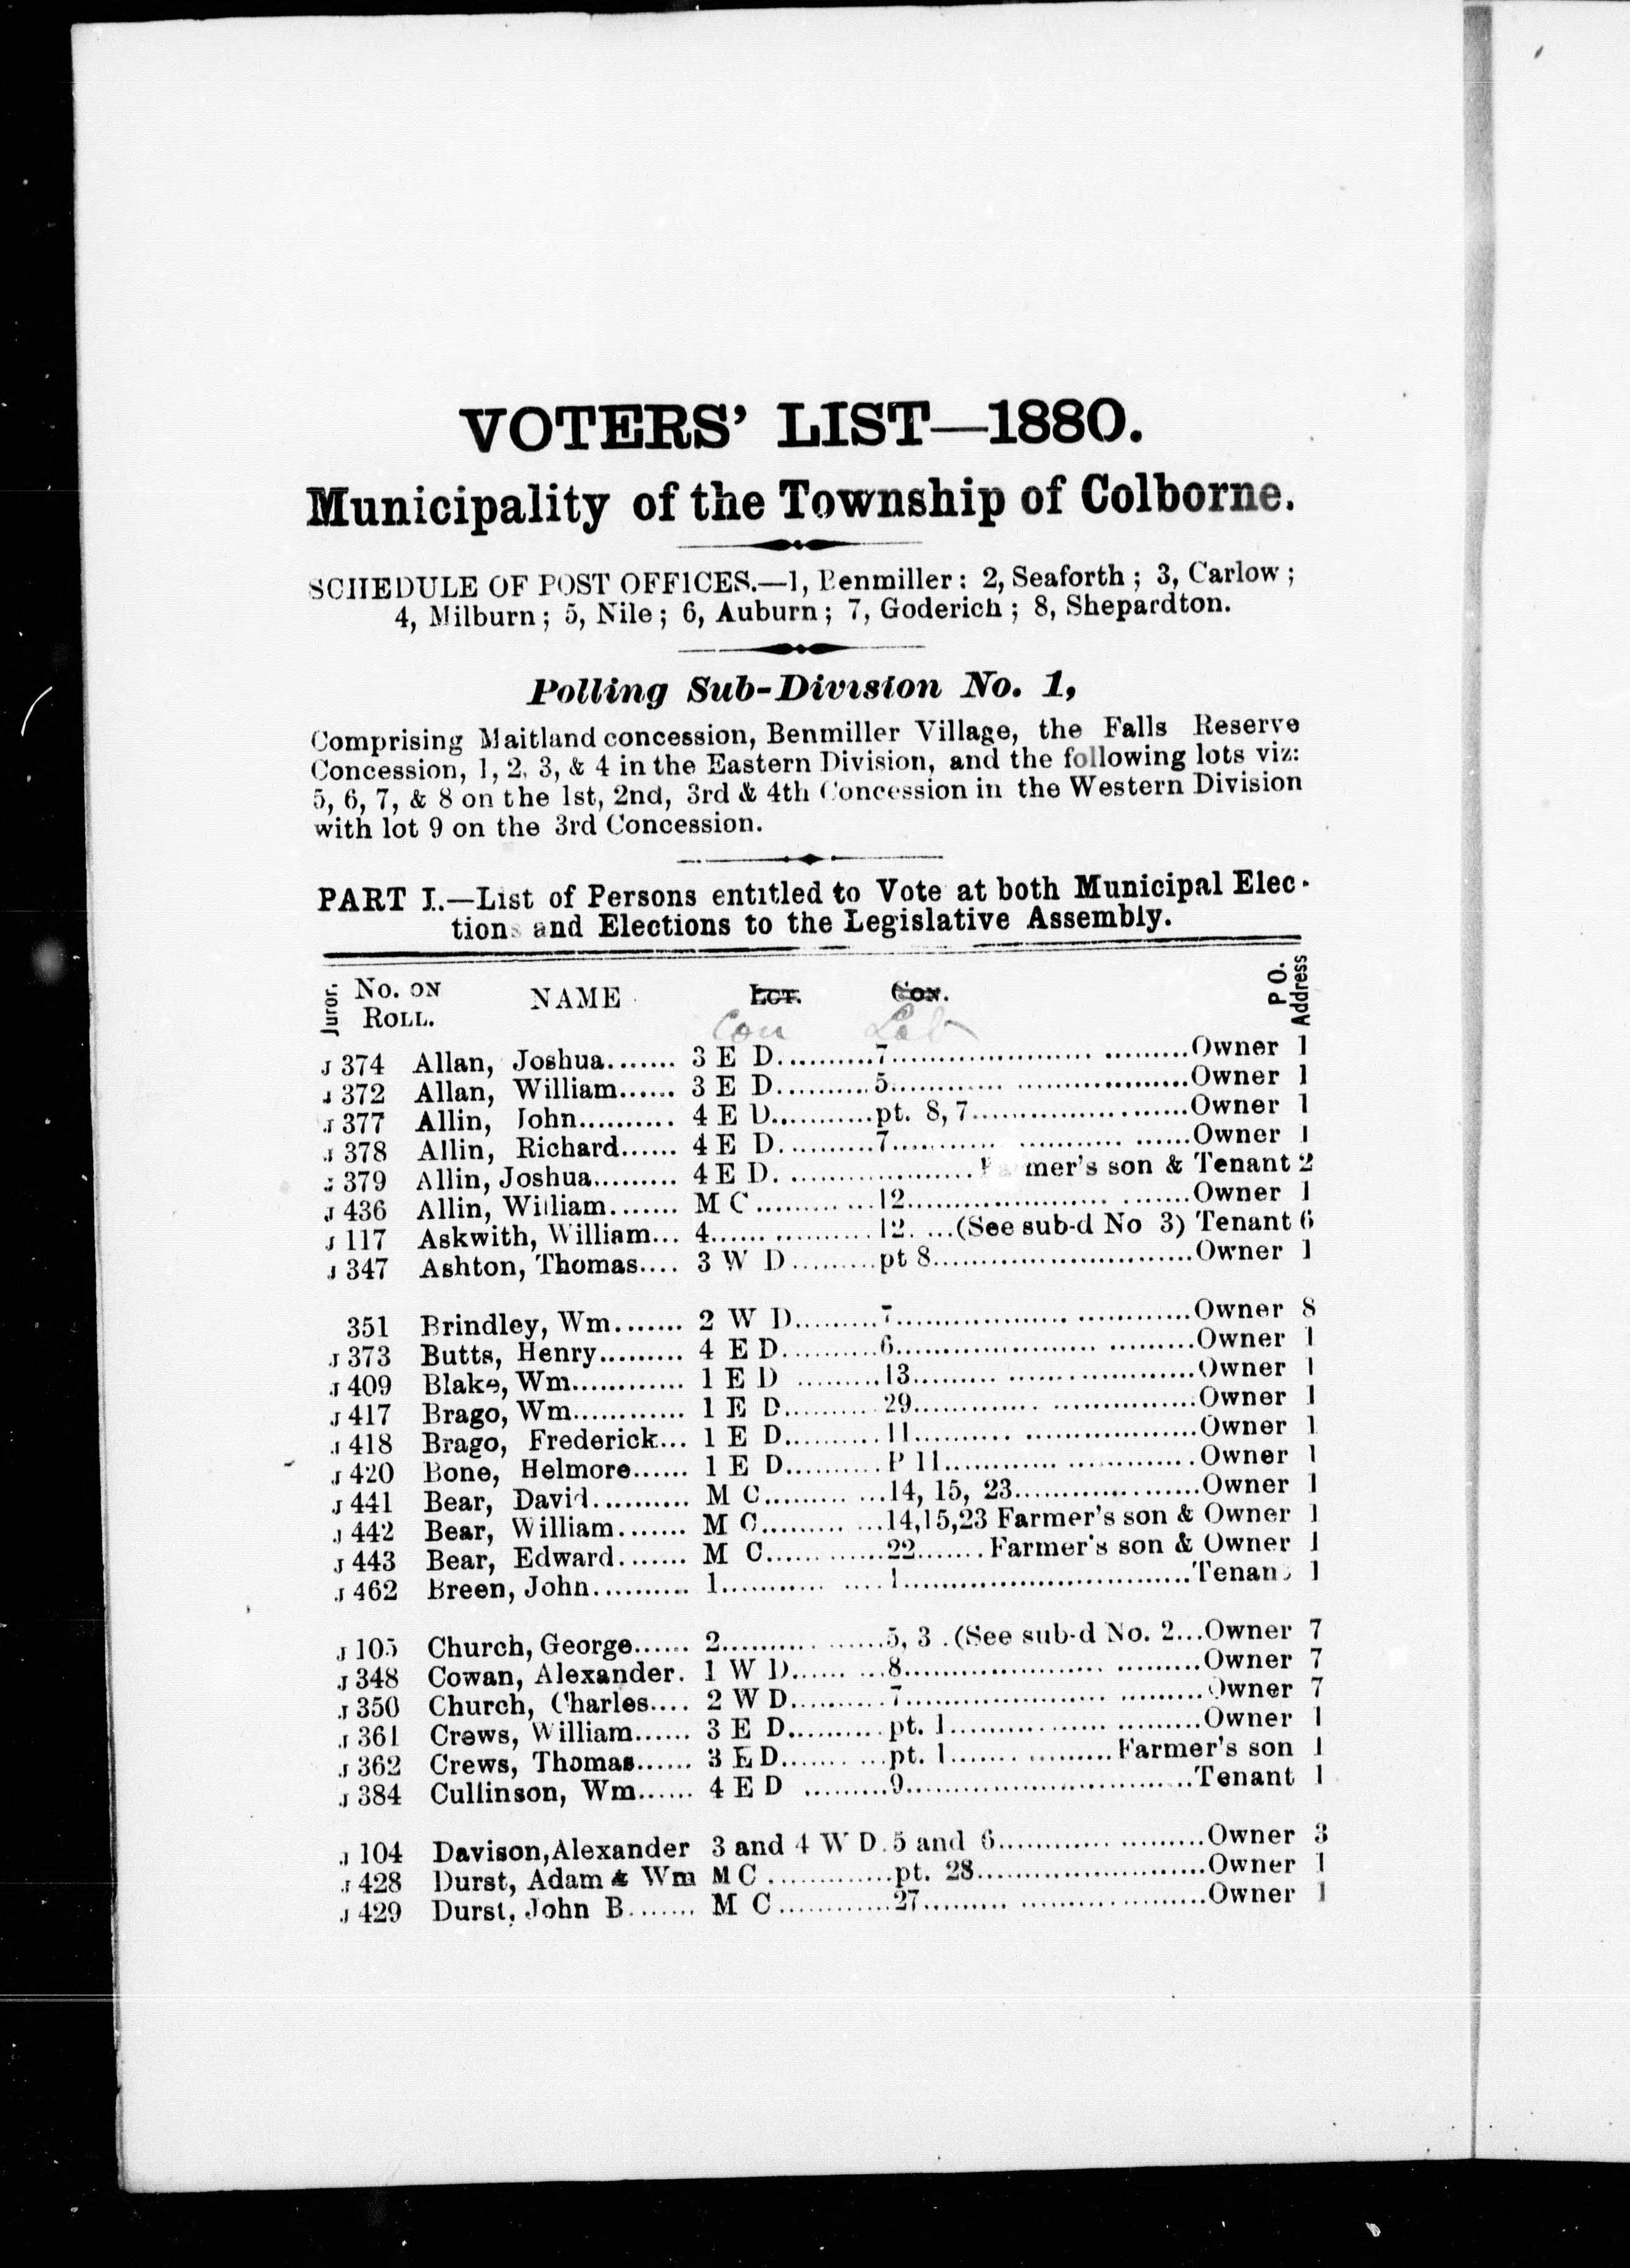 VOTERS' LIST—1880.
Municipality of the Township of Colborne.
SCHEDULE OF POST OFFICES.—1, Benmiller: 2, Seaforth; 3, Carlow;
4, Milburn; 5, Nile; 6, Auburn; 7, Goderich; 8, Shepardton.
Polling Sub-Division No. 1,
Comprising Maitland concession, Benmiller Village, the Falls Reserve
Concession, 1, 2, 3, & 4 in the Eastern Division, and the following lots viz:
5, 6, 7, & 8 on the 1st, 2nd, 3rd & 4th Concession in the Western Division
with lot 9 on the 3rd Concession.
PART I.—List of Persons entitled to Vote at both Municipal Elec-
tions and Elections to the Legislative Assembly.
Juror. No. ON ROLL. NAME LOT. CON. P O. Address
Con Lot
J 374 Allan, Joshua....... 3 E D..........7..............................Owner 1
J 372 Allan, William...... 3 E D..........5..............................Owner 1
J 377 Allin, John.......... 4 E D...........pt. 8, 7......................Owner 1
J 378 Allin, Richard...... 4 E D..........7..............................Owner 1
J 379 Allin, Joshua......... 4 E D. ....................Farmer's son & Tenant 2
J 436 Allin, William....... M C ............12..............................Owner 1
J 117 Askwith, William... 4..................12. ...(See sub-d No 3) Tenant 6
J 347 Ashton, Thomas.... 3 W D.........pt 8...........................Owner 1
351 Brindley, Wm....... 2 W D.........7..............................Owner 8
J 373 Butts, Henry......... 4 E D..........6..............................Owner 1
J 409 Blake, Wm............ 1 E D .........13..............................Owner 1
J 417 Brago, Wm............ 1 E D..........29..............................Owner 1
J 418 Brago, Frederick... 1 E D..........11..............................Owner 1
J 420 Bone, Helmore...... 1 E D..........P 11..........................Owner 1
J 441 Bear, David.......... M C............14, 15, 23....................Owner 1
J 442 Bear, William....... M C............14,15,23 Farmer's son & Owner 1
J 443 Bear, Edward....... M C............22.......Farmer's son & Owner 1
J 462 Breen, John.......... 1............ ....1..............................Tenant 1
J 105 Church, George...... 2.................5, 3 .(See sub-d No. 2...Owner 7
J 348 Cowan, Alexander. 1 W D.........8..............................Owner 7
J 350 Church, Charles.... 2 W D..........7..............................Owner 7
J 361 Crews, William...... 3 E D..........pt. 1..........................Owner 1
J 362 Crews, Thomas...... 3 E D..........pt. 1.................Farmer's son 1
J 384 Cullinson, Wm...... 4 E D .........9..............................Tenant 1
J 104 Davison, Alexander 3 and 4 W D. 5 and 6......................Owner 3
J 428 Durst, Adam & Wm M C .............pt. 28.........................Owner 1
J 429 Durst, John B....... M C............27..............................Owner 1